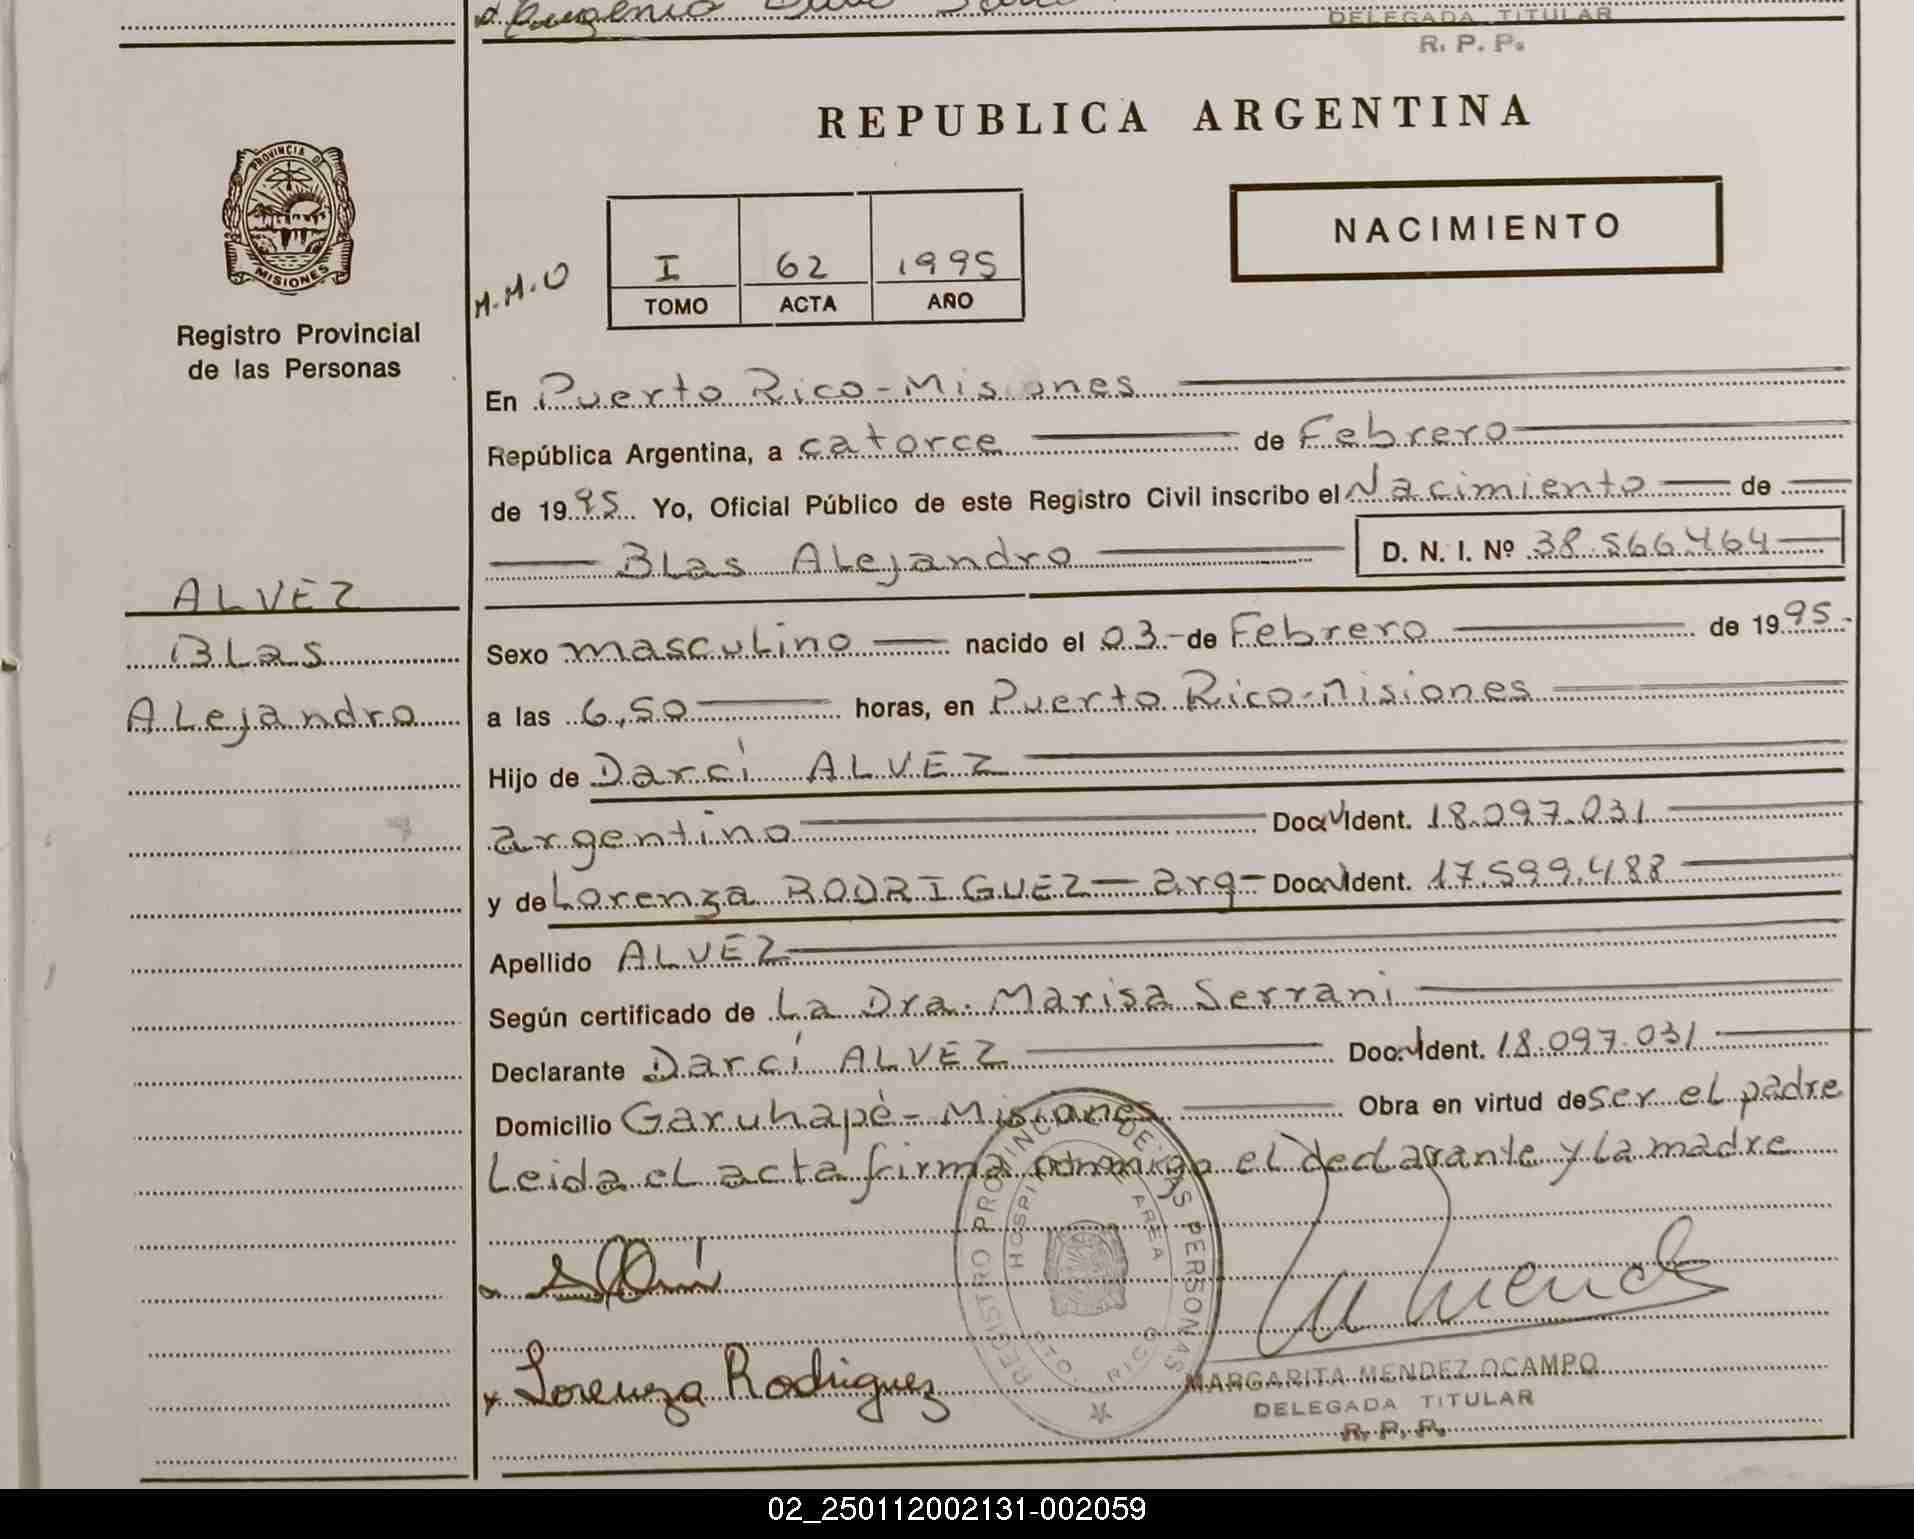 Eugenio
DELEGADA TITULAR
R. P. P.
PROVINCIA DE
MISIONES
Registro Provincial
de las Personas
REPUBLICA ARGENTINA
NACIMIENTO
M.M.O
I 62 1995
TOMO ACTA AÑO
En Puerto Rico-Misiones
República Argentina, a catorce de Febrero
de 1995 Yo, Oficial Público de este Registro Civil inscribo el Nacimiento de
Blas Alejandro D. N. I. Nº 38.566.464
ALVEZ
Blas
Alejandro
Sexo masculino nacido el 03 - de Febrero de 1995-
a las 6,50 horas, en Puerto Rico-Misiones
Hijo de Darcí ALVEZ
argentino Doc. Ident. 18.097.031
y de Lorenza RODRIGUEZ - arg - Doc. Ident. 17.599.488
Apellido ALVEZ
Según certificado de La Dra. Marisa Serrani
Declarante Darcí ALVEZ Doc. Ident. 18.097.031
Domicilio Garuhapé - Misiones Obra en virtud de ser el padre
Leida el acta firma conmigo el declarante y la madre
REGISTRO PROVINCIAL DE LAS PERSONAS
HOSPITAL DE AREA
PTO. RICO
x Lorenza Rodriguez
MARGARITA MENDEZ OCAMPO
DELEGADA TITULAR
R. P. P.
02_250112002131-002059